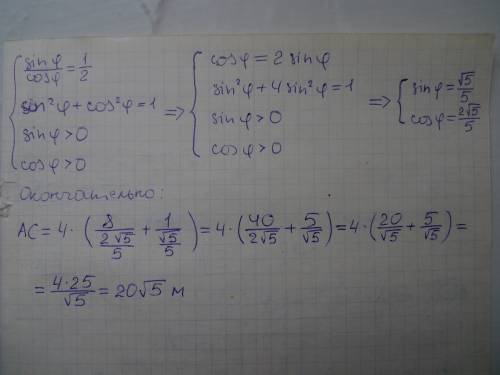 { sinφ/cosφ = 1/2 ; sin²φ + cos²φ = 1 ; sinφ > 0 ; cosφ > 0 => { cosφ = 2 sinφ ; sin²φ + 4 sin²φ = 1 ; sinφ > 0 ; cosφ > 0 => { sinφ = √5/5 ; cosφ = 2√5/5
Окончательно:
AC = 4 · ( 8/(2√5/5) + 1/(√5/5) ) = 4 · ( 40/(2√5) + 5/√5 ) = 4 · ( 20/√5 + 5/√5 ) =
= 4·25/√5 = 20√5 м